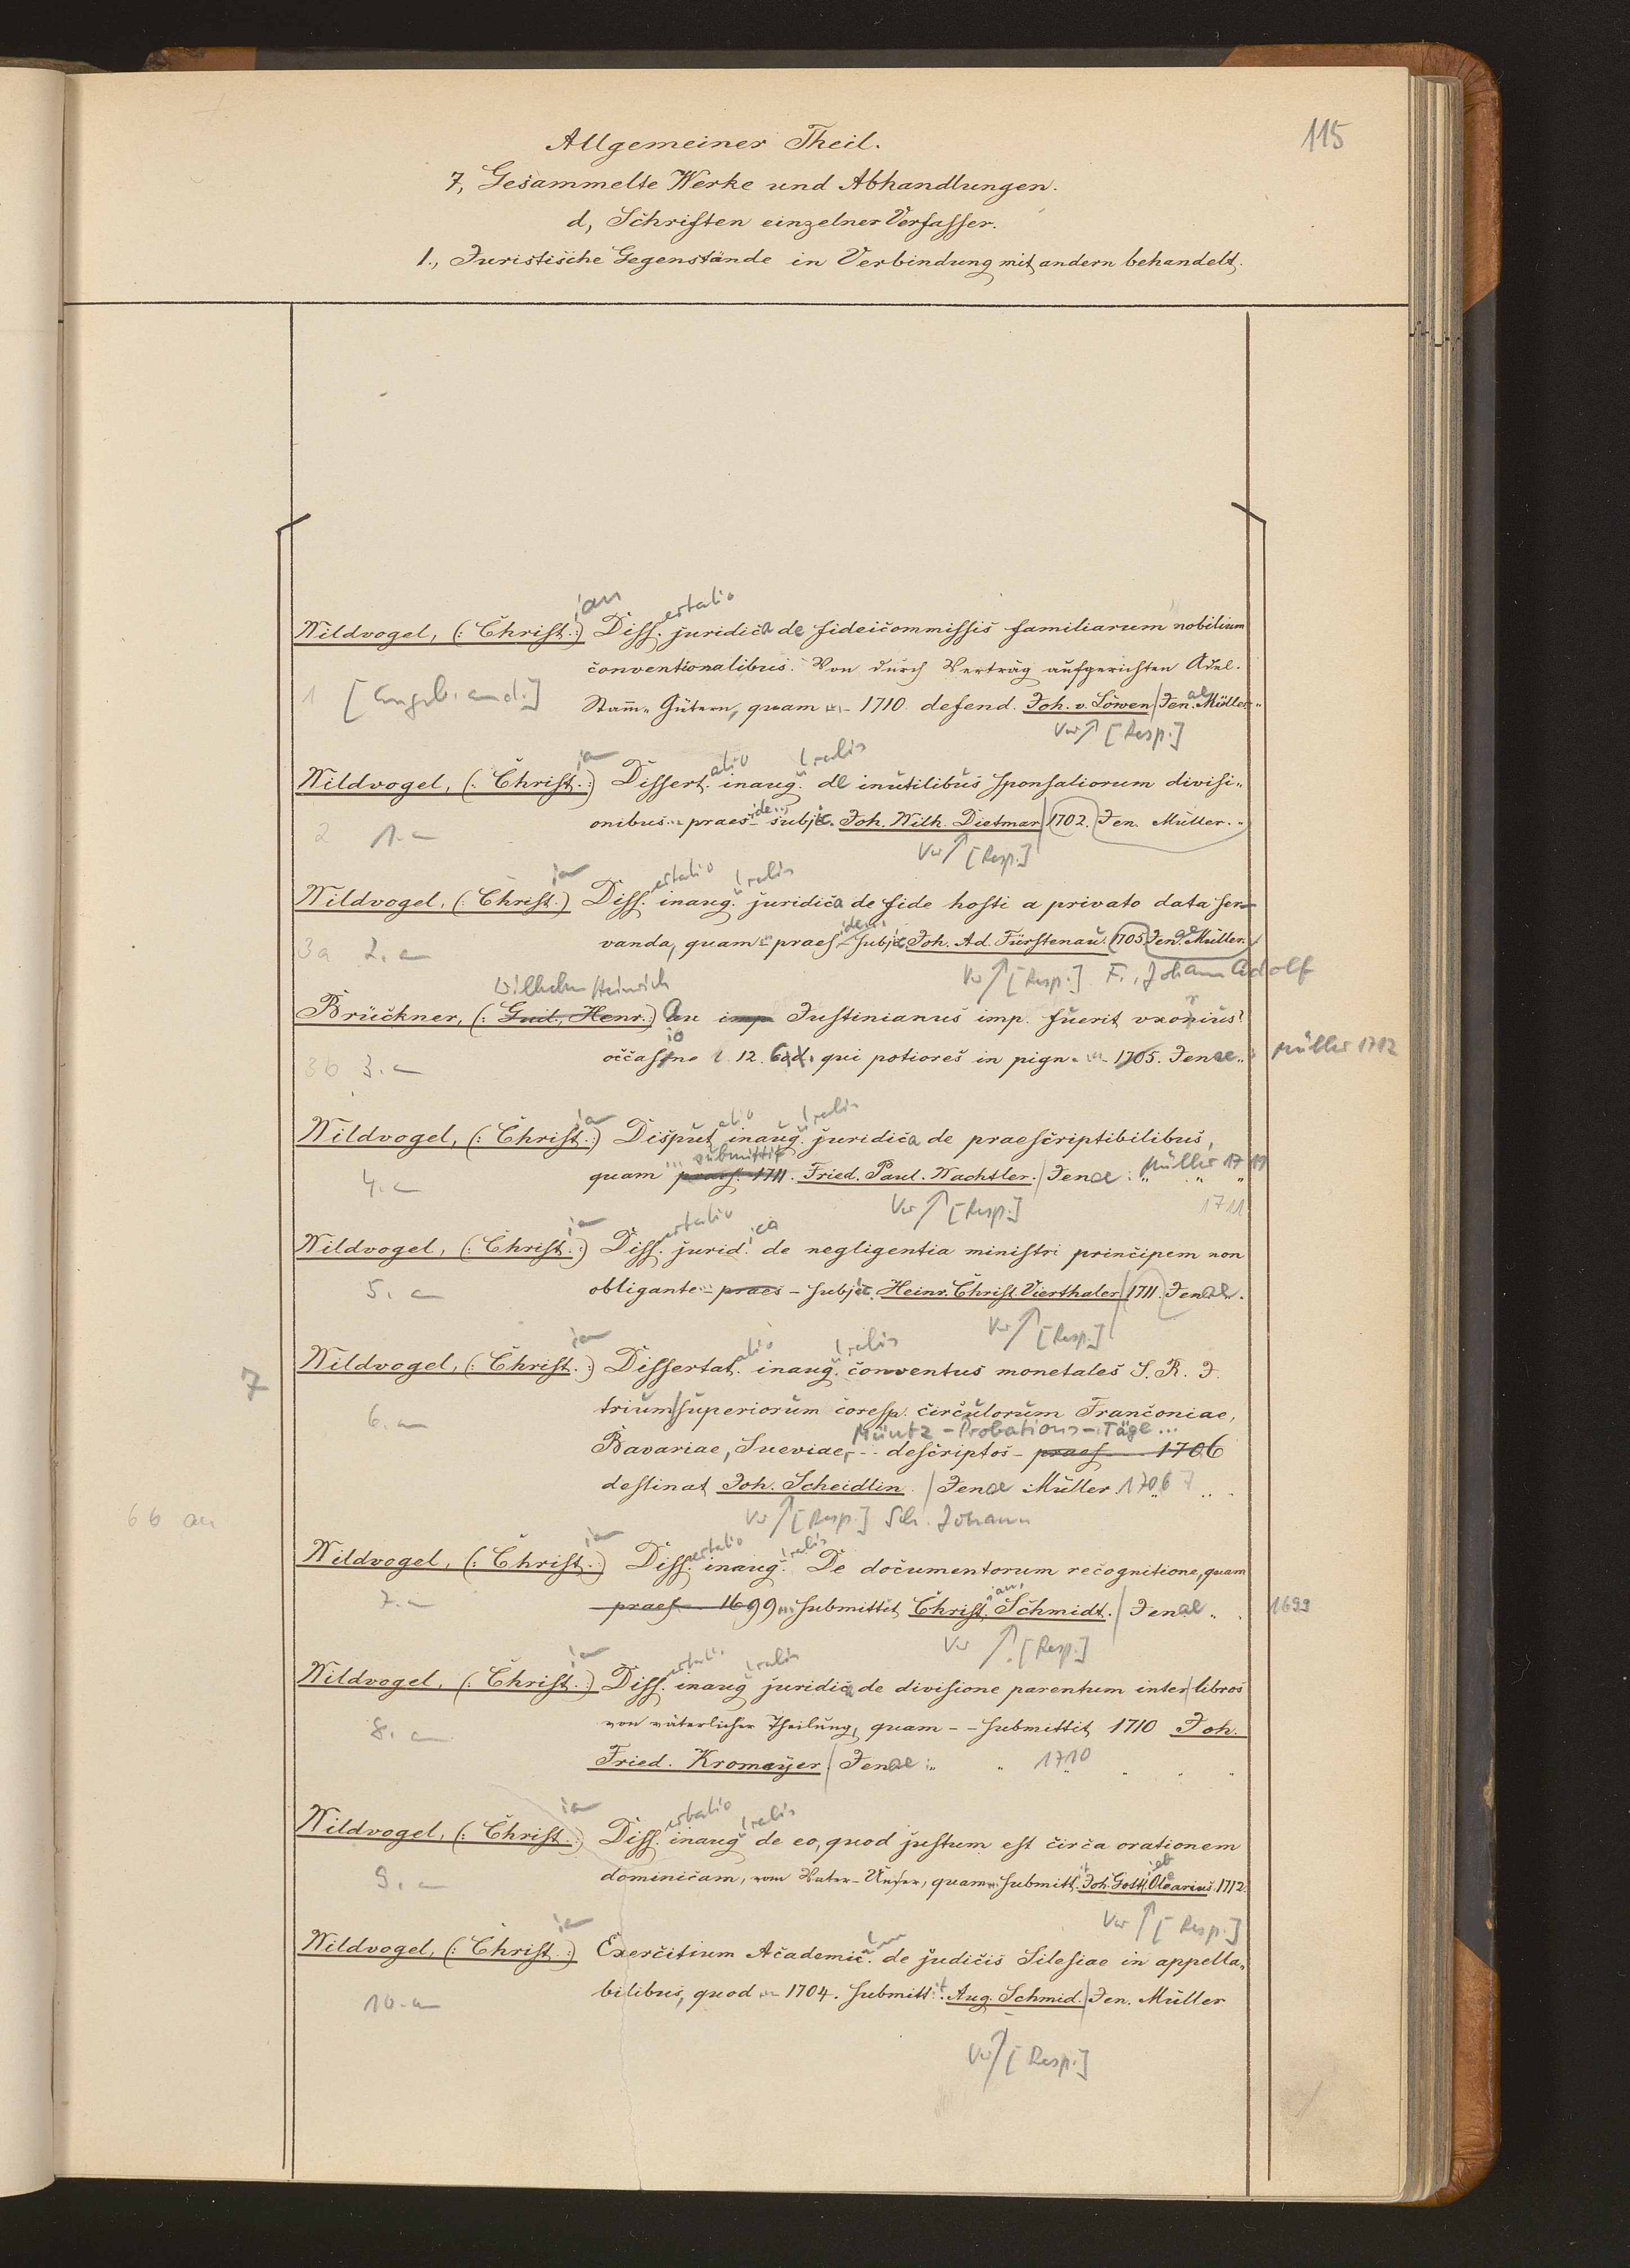 115
Allgemeiner Theil.
7, Gesammelte Werke und Abhandlungen.
d, Schriften einzelner Verfasser.
1., Juristische Gegenstände in Verbindung mit andern behandelt.
ian ertatio
Wildvogel, (: Christ.:) Diss. juridica de fideicommissis familiarum nobilium
conventionalibus. Von durch Verträg aufgerichten Adel.
1 Stam̄= Gütern, quam ... 1710. defend. Joh. v. Löwen / Jen.ae Müller
Ver ↑ [Resp.]
atio
Wildvogel, (: Christ.:) Dissert. inaug. de inutilibus sponsaliorum divisi=
2 1. onibus praes ide... subjic. Joh. Wilh. Dietmar / 1702. Jen. Müller.
Ver ↑ [Resp.]
ertatio
Wildvogel, (: Christ.:) Diss. inaug. juridica de fide hosti a privato data ser=
3a 2. vanda, quam praes subjic. Joh. Ad. Fürstenau. 1705 Jen.ae Müller.
Ver ↑ [Resp.] F., Johann Adolf
Wilhelm Heinrich
Brückner, (: Guil. Henr.:) An imp Justinianus imp. fuerit uxorius?
3b 3. occasione l. 12. Cod. qui potiores in pign. ... 1705. Jenae Müller 1712
atio
Wildvogel, (: Christ.:) Disput. inaug. juridica de praescriptibilibus,
submittit
4. quam praes. 1711. Fried. Paul. Wachtler. / Jenae: Müller 1711
Ver ↑ [Resp.] 1711
ertatio ica
Wildvogel, (: Christ.:) Diss. jurid. de negligentia ministri principem non
5. obligante praes - subjic. Heinr. Christ. Vierthaler / 1711. Jenae.
Ver ↑ [Resp.]
atio
Wildvogel, (: Christ.:) Dissertat. inaug. conventus monetales S. R. J.
7
6. trium superiorum coresp. circulorum Franconiae,
Müntz-Probations-Täge...
Bavariae, Sueviae, -- descriptos - praes 1706
destinat Joh. Scheidlin. / Jenae Müller 1706 7
66 an
Ver ↑ [Resp.] Sch. Johann
ertatio
Wildvogel, (: Christ.:) Diss. inaug. De documentorum recognitione, quam
ian,
7. praes 1699 submittit Christ. Schmidt. / Jenae 1699
Ver ↑ [Resp.]
ertatio
Wildvogel, (: Christ.:) Diss. inaug juridica de divisione parentum inter libros
8. von väterlicher Theilung, quam -- submittit 1710 Joh.
Fried. Kromayer / Jenae: 1710
ertatio
Wildvogel, (: Christ.:) Diss. inaug de eo, quod justum est circa orationem
9. dominicam, vom Vater-Unser, quam submitt. Joh. Gottl. Olearius. 1712.
Ver ↑ [Resp.]
Wildvogel, (: Christ.:) Exercitium Academic. de judiciis Silesiae in appella=
10. bilibus, quod ... 1704. submitt. Aug. Schmid. / Jen. Müller
Ver ↑ [Resp.]